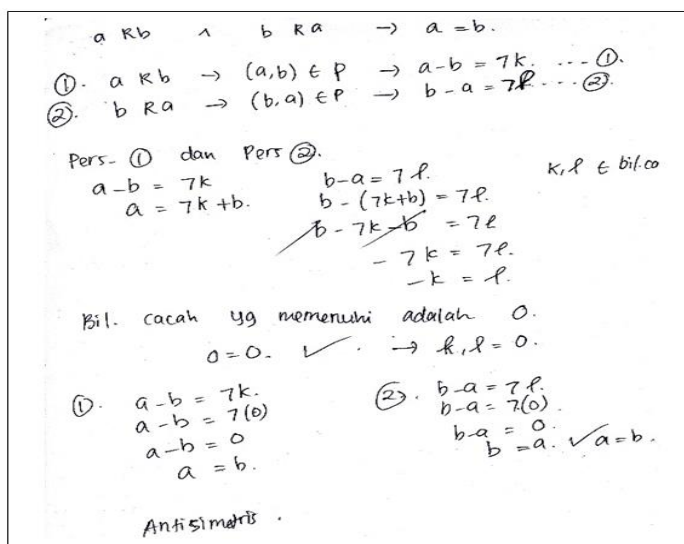 a Rb ∧ b Ra → a = b.
①. a Rb → (a,b) ∈ P → a-b = 7k. ... ①.
②. b Ra → (b,a) ∈ P → b-a = 7ℓ ... ②.
Pers. ① dan Pers ②.
a-b = 7k b-a = 7ℓ. k,ℓ ∈ bil.ca
a = 7k+b. b-(7k+b) = 7ℓ.
b-7k-b = 7ℓ
-7k = 7ℓ.
-k = ℓ.
Bil. cacah yg memenuhi adalah 0.
0=0. ✓. → k,ℓ = 0.
①. a-b = 7k. ②. b-a = 7ℓ.
a-b = 7(0) b-a = 7(0).
a-b = 0 b-a = 0.
a = b. b = a. ✓ a=b.
Antisimetris.